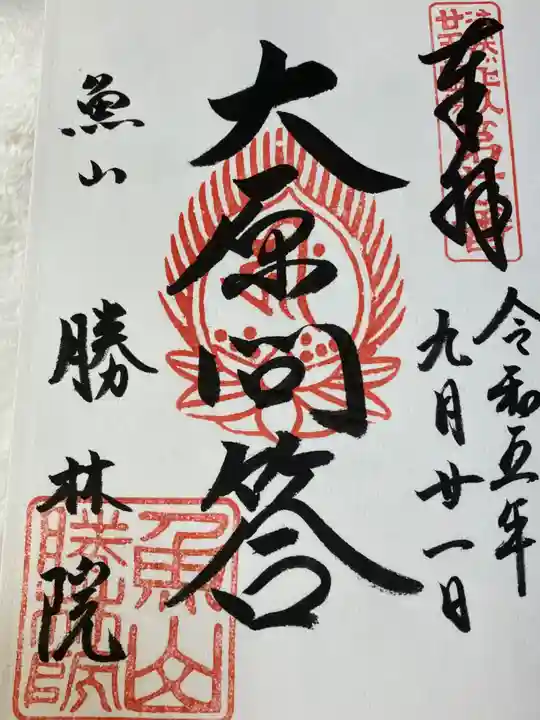 奉拝
令和五年
九月廿一日
大原問答
魚山
勝林院
魚山
勝林院